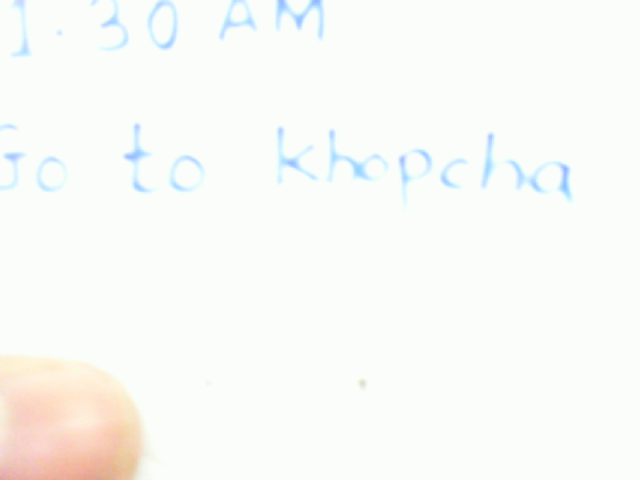 1.30 AM
Go to khopcha